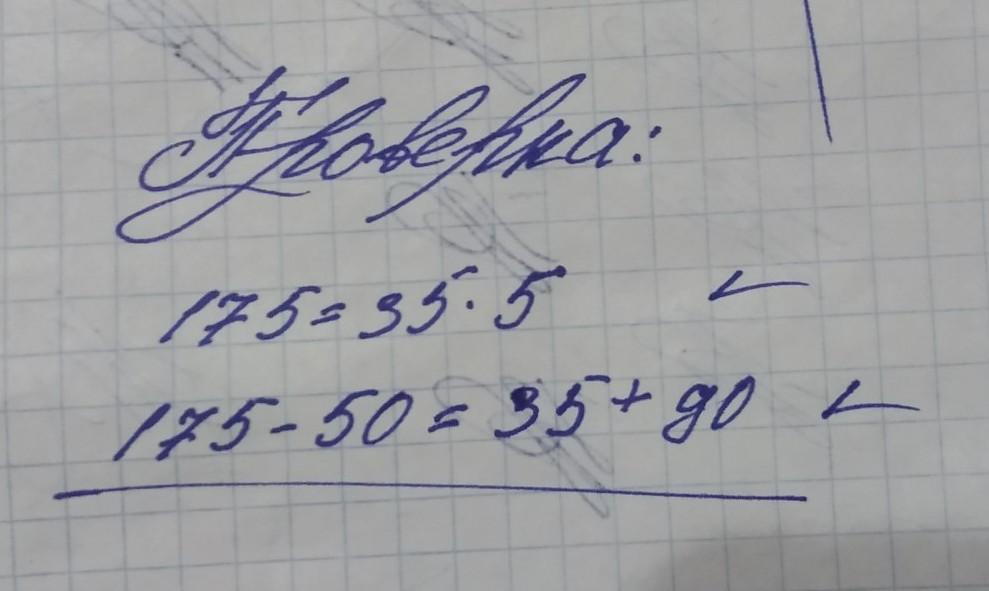 Проверка:
175 = 35 · 5 ✓
175 - 50 = 35 + 90 ✓